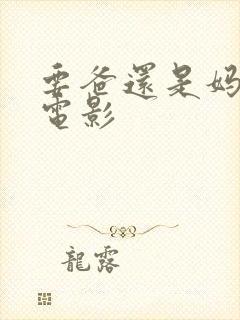 要爸還是妈
電影
龍露